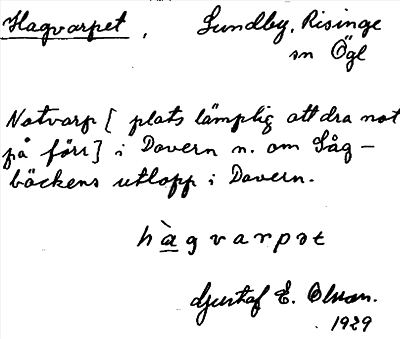 Hagvarpet, Lundby, Risinge
sn Ögl
Notvarp [ plats lämplig att dra not
på förr] i Dovern n. om Såg-
bäckens utlopp i Dovern.
hàgvarpət
Gustaf E. Olsson.
1929